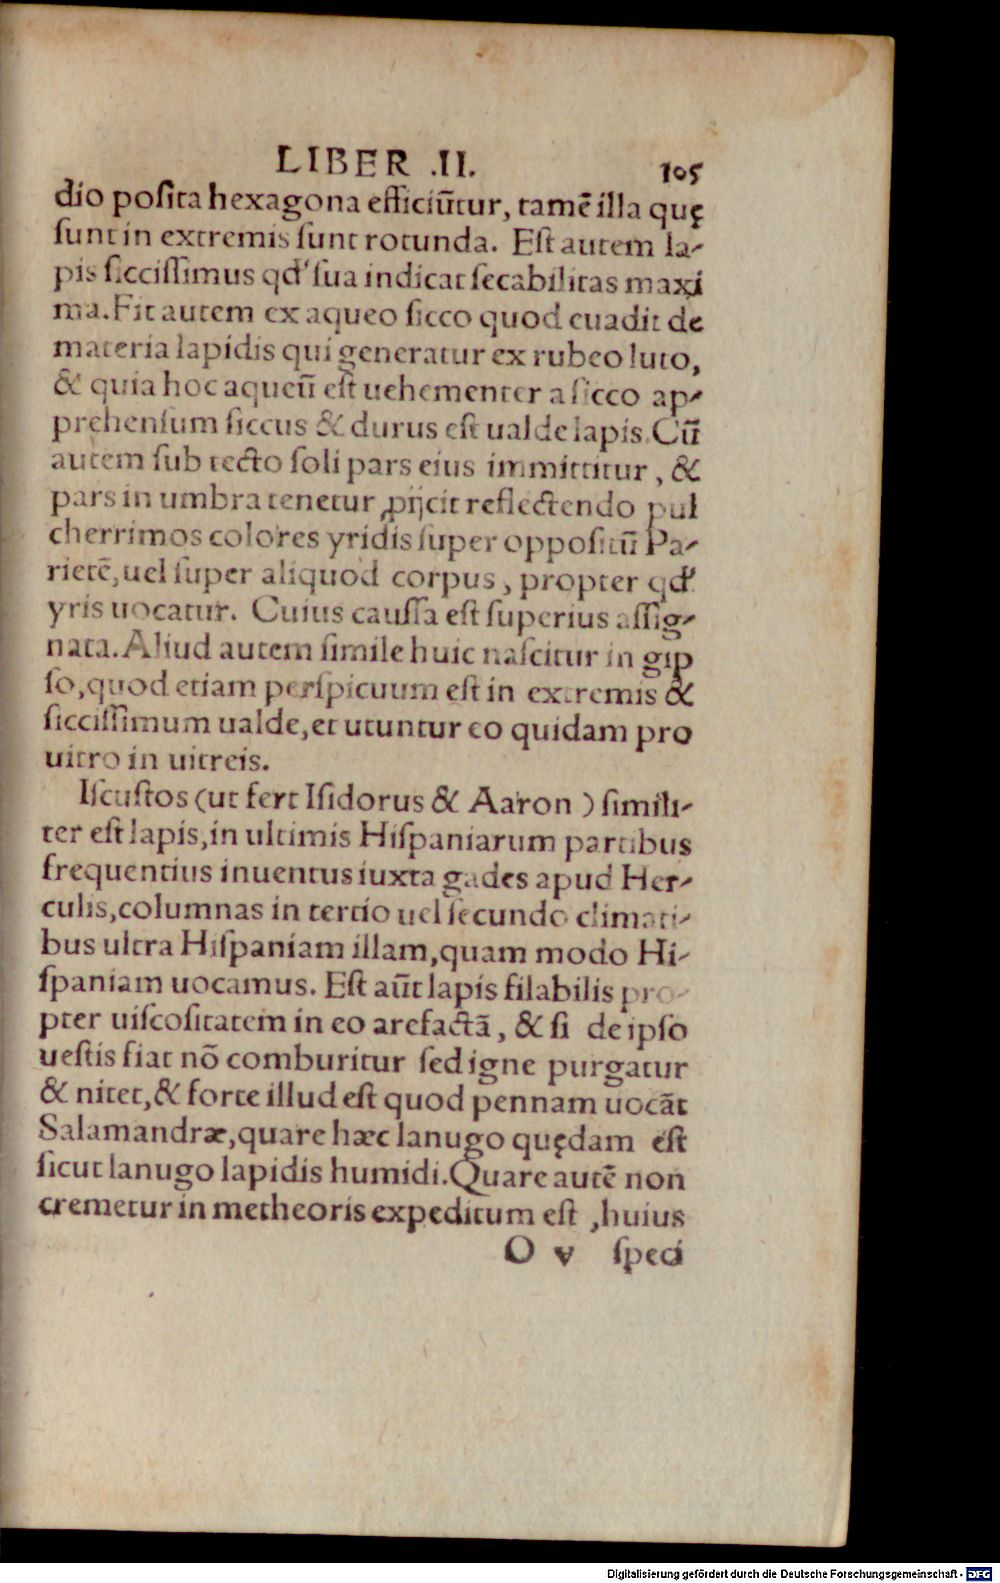 LIBER .II. 105
dio poſita hexagona efficiūtur, tamē illa quę
ſunt in extremis ſunt rotunda. Eſt autem la-
pis ſicciſſimus qđ ſua indicat ſecabilitas maxi
ma. Fit autem ex aqueo ſicco quod euadit de
materia lapidis qui generatur ex rubeo luto,
& quia hoc aqueū eſt uehementer a ſicco ap-
prehenſum ſiccus & durus eſt ualde lapis. Cū
autem ſub tecto ſoli pars eius immittitur, &
pars in umbra tenetur, ꝓijcit reflectendo pul
cherrimos colores yridis ſuper oppoſitū Pa-
rietē, uel ſuper aliquod corpus, propter qđ
yris uocatur. Cuius cauſſa eſt ſuperius aſſig-
nata. Aliud autem ſimile huic naſcitur in gip
ſo, quod etiam perſpicuum eſt in extremis &
ſicciſſimum ualde, et utuntur eo quidam pro
uitro in uitreis.
Iſcuſtos (ut fert Iſidorus & Aaron) ſimili-
ter eſt lapis, in ultimis Hiſpaniarum partibus
frequentius inuentus iuxta gades apud Her-
culis, columnas in tertio uel ſecundo climati-
bus ultra Hiſpaniam illam, quam modo Hi-
ſpaniam uocamus. Eſt aūt lapis filabilis pro-
pter uiſcoſitatem in eo arefactā, & ſi de ipſo
ueſtis fiat nō comburitur ſed igne purgatur
& nitet, & forte illud eſt quod pennam uocāt
Salamandræ, quare hæc lanugo quędam eſt
ſicut lanugo lapidis humidi. Quare autē non
cremetur in metheoris expeditum eſt, huius
O v ſpeci
Digitalisierung gefördert durch die Deutsche Forschungsgemeinschaft - DFG